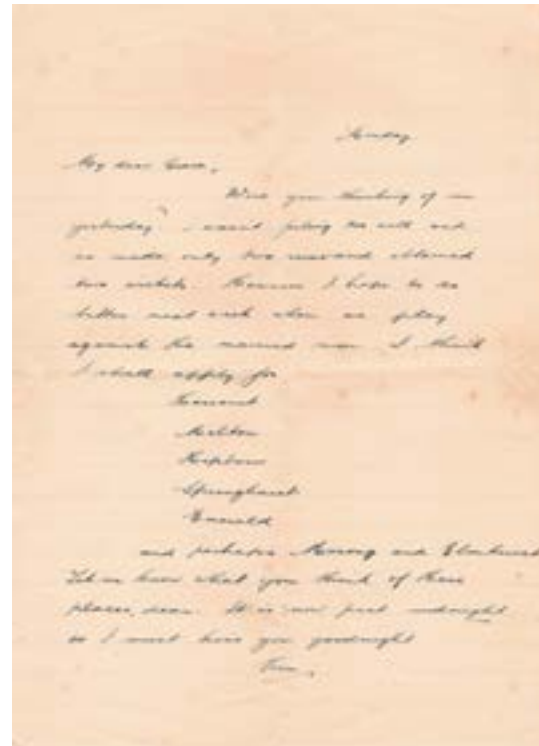 Sunday
My dear
Were you thinking of me
yesterday? I wasn't feeling too well and
so made only two runs and obtained
two wickets. However I hope to do
better next week when we play
against the married men. I think
I shall apply for
Melton
Springhurst
Emerald
and perhaps and
Let me know what you think of these
places, dear. It is now past midnight
so I must kiss you goodnight